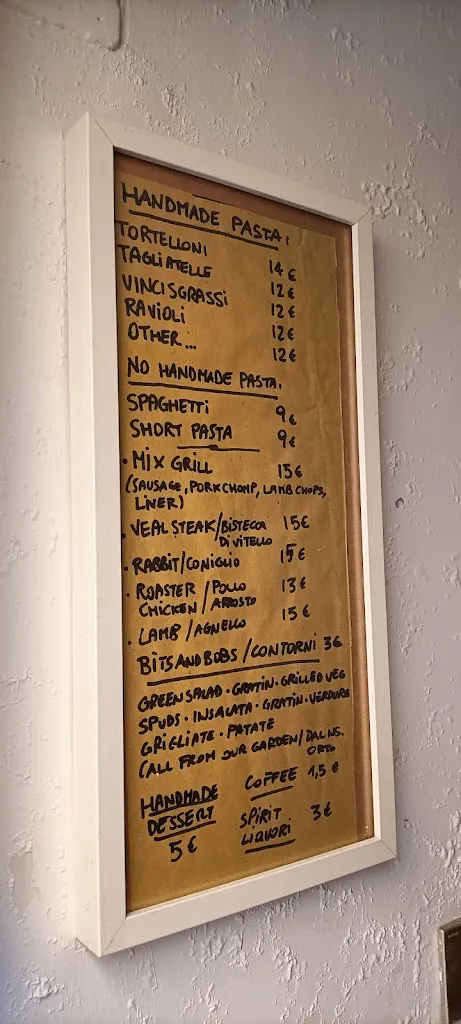 HANDMADE PASTA:
TORTELLONI 14€
TAGLIATELLE 12€
VINCISGRASSI 12€
RAVIOLI 12€
OTHER... 12€
NO HANDMADE PASTA.
SPAGHETTI 9€
SHORT PASTA 9€
• MIX GRILL 15€
(SAUSAGE, PORK CHOMP, LAMB CHOPS,
LINER)
• VEAL STEAK/BISTECCA 15€
DI VITELLO
• RABBIT/CONIGLIO 15€
• ROASTER /POLLO 13€
CHICKEN /ARROSTO
• LAMB/AGNELLO 15€
BITS AND BOBS/CONTORNI 3€
GREEN SALAD • GRATIN • GRILLED VEG
SPUDS • INSALATA • GRATIN • VERDURE
GRIGLIATE • PATATE
(ALL FROM OUR GARDEN/DAL NS.
ORTO
HANDMADE
DESSERT
5€
COFFEE 1,5€
SPIRIT 3€
LIQUORI